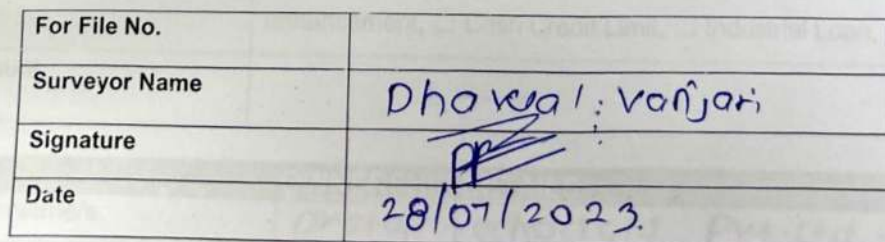 For File No.
Surveyor Name Dhaval. Vanjari
Signature
Date 28/07/2023.